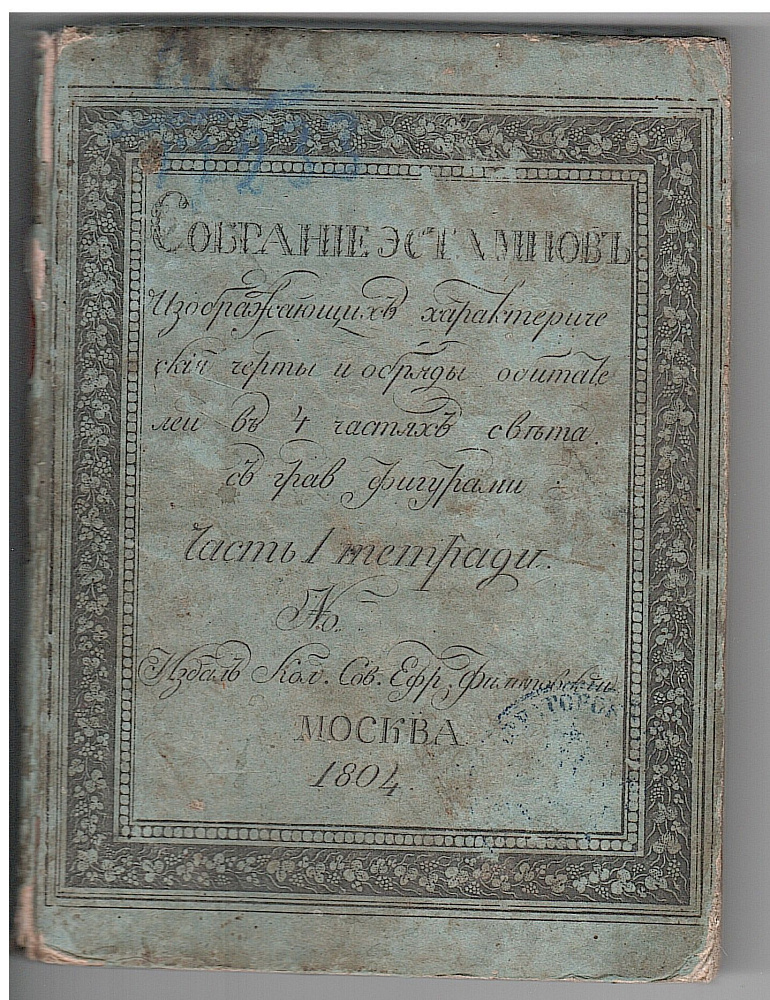 1233
СОБРАНІЕ ЭСТАМПОВЪ
Изображающихъ характериче
скія черты и обряды обитате
леи въ 4 частяхъ свѣта.
съ грав фигурами
Часть 1 тетради.
No.
Издалъ Кол. Сов. Ефр. Филиповскіи.
МОСКВА
1804.